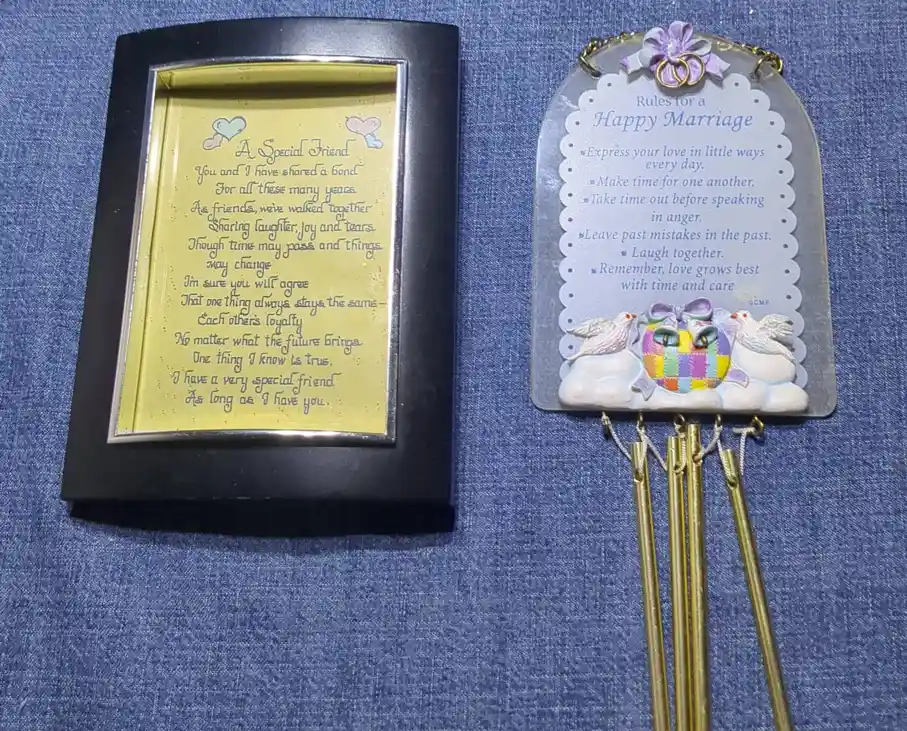 A Special Friend
You and I have shared a bond
For all these many years.
As friends, we've walked together
Sharing laughter, joy and tears.
Though time may pass and things
may change
I'm sure you will agree
That one thing always stays the same—
Each other's loyalty
No matter what the future brings
One thing I know is true,
I have a very special friend
As long as I have you.
Rules for a
Happy Marriage
Express your love in little ways
every day.
Make time for one another.
Take time out before speaking
in anger.
Leave past mistakes in the past.
Laugh together.
Remember, love grows best
with time and care
GCMF